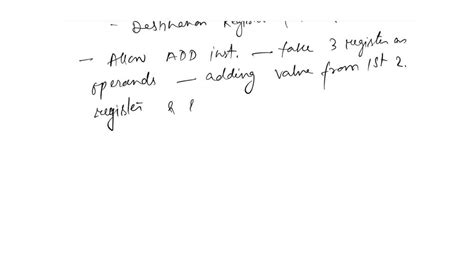 - Destination Register
- Allow ADD inst. — take 3 register as
operands — adding value from 1st 2
register &